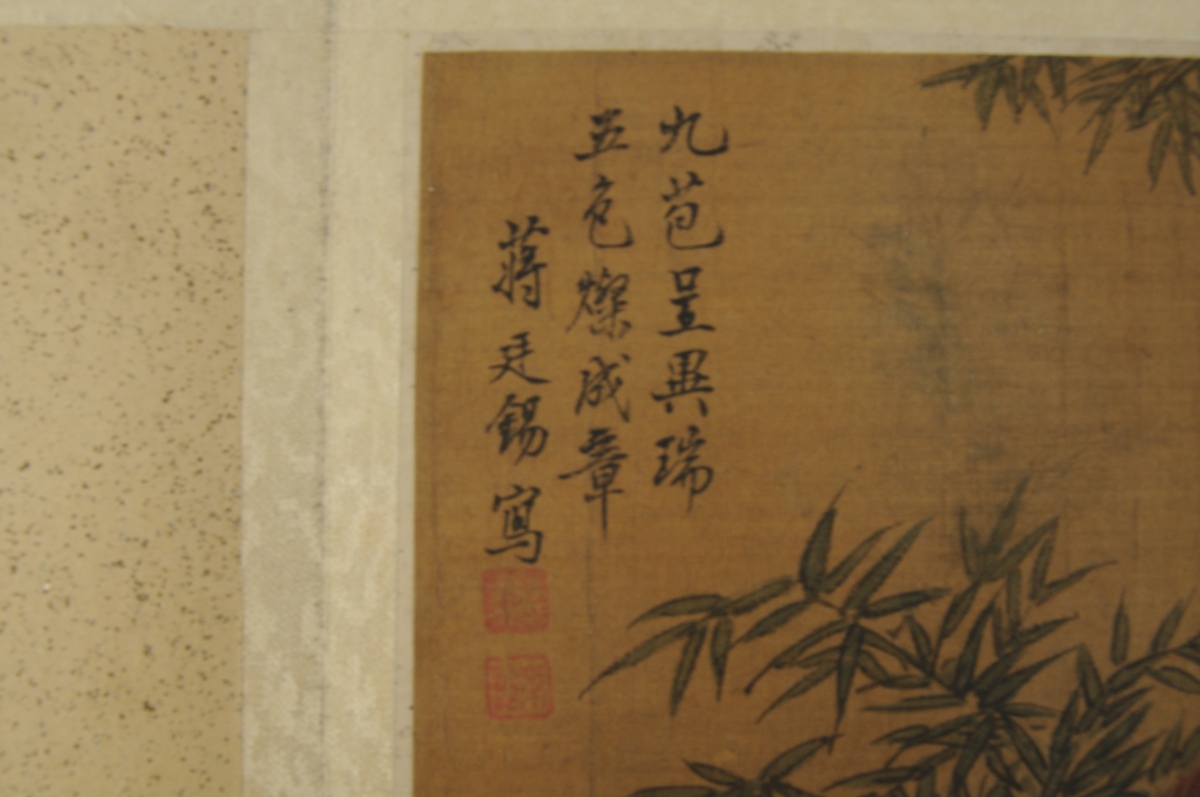 九苞呈異瑞
五色燦成章
蔣廷錫寫